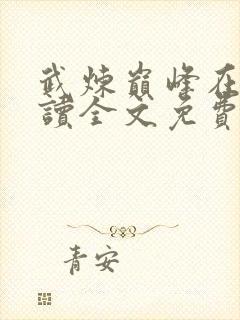 武煉巔峰在
讀全文免費
青安